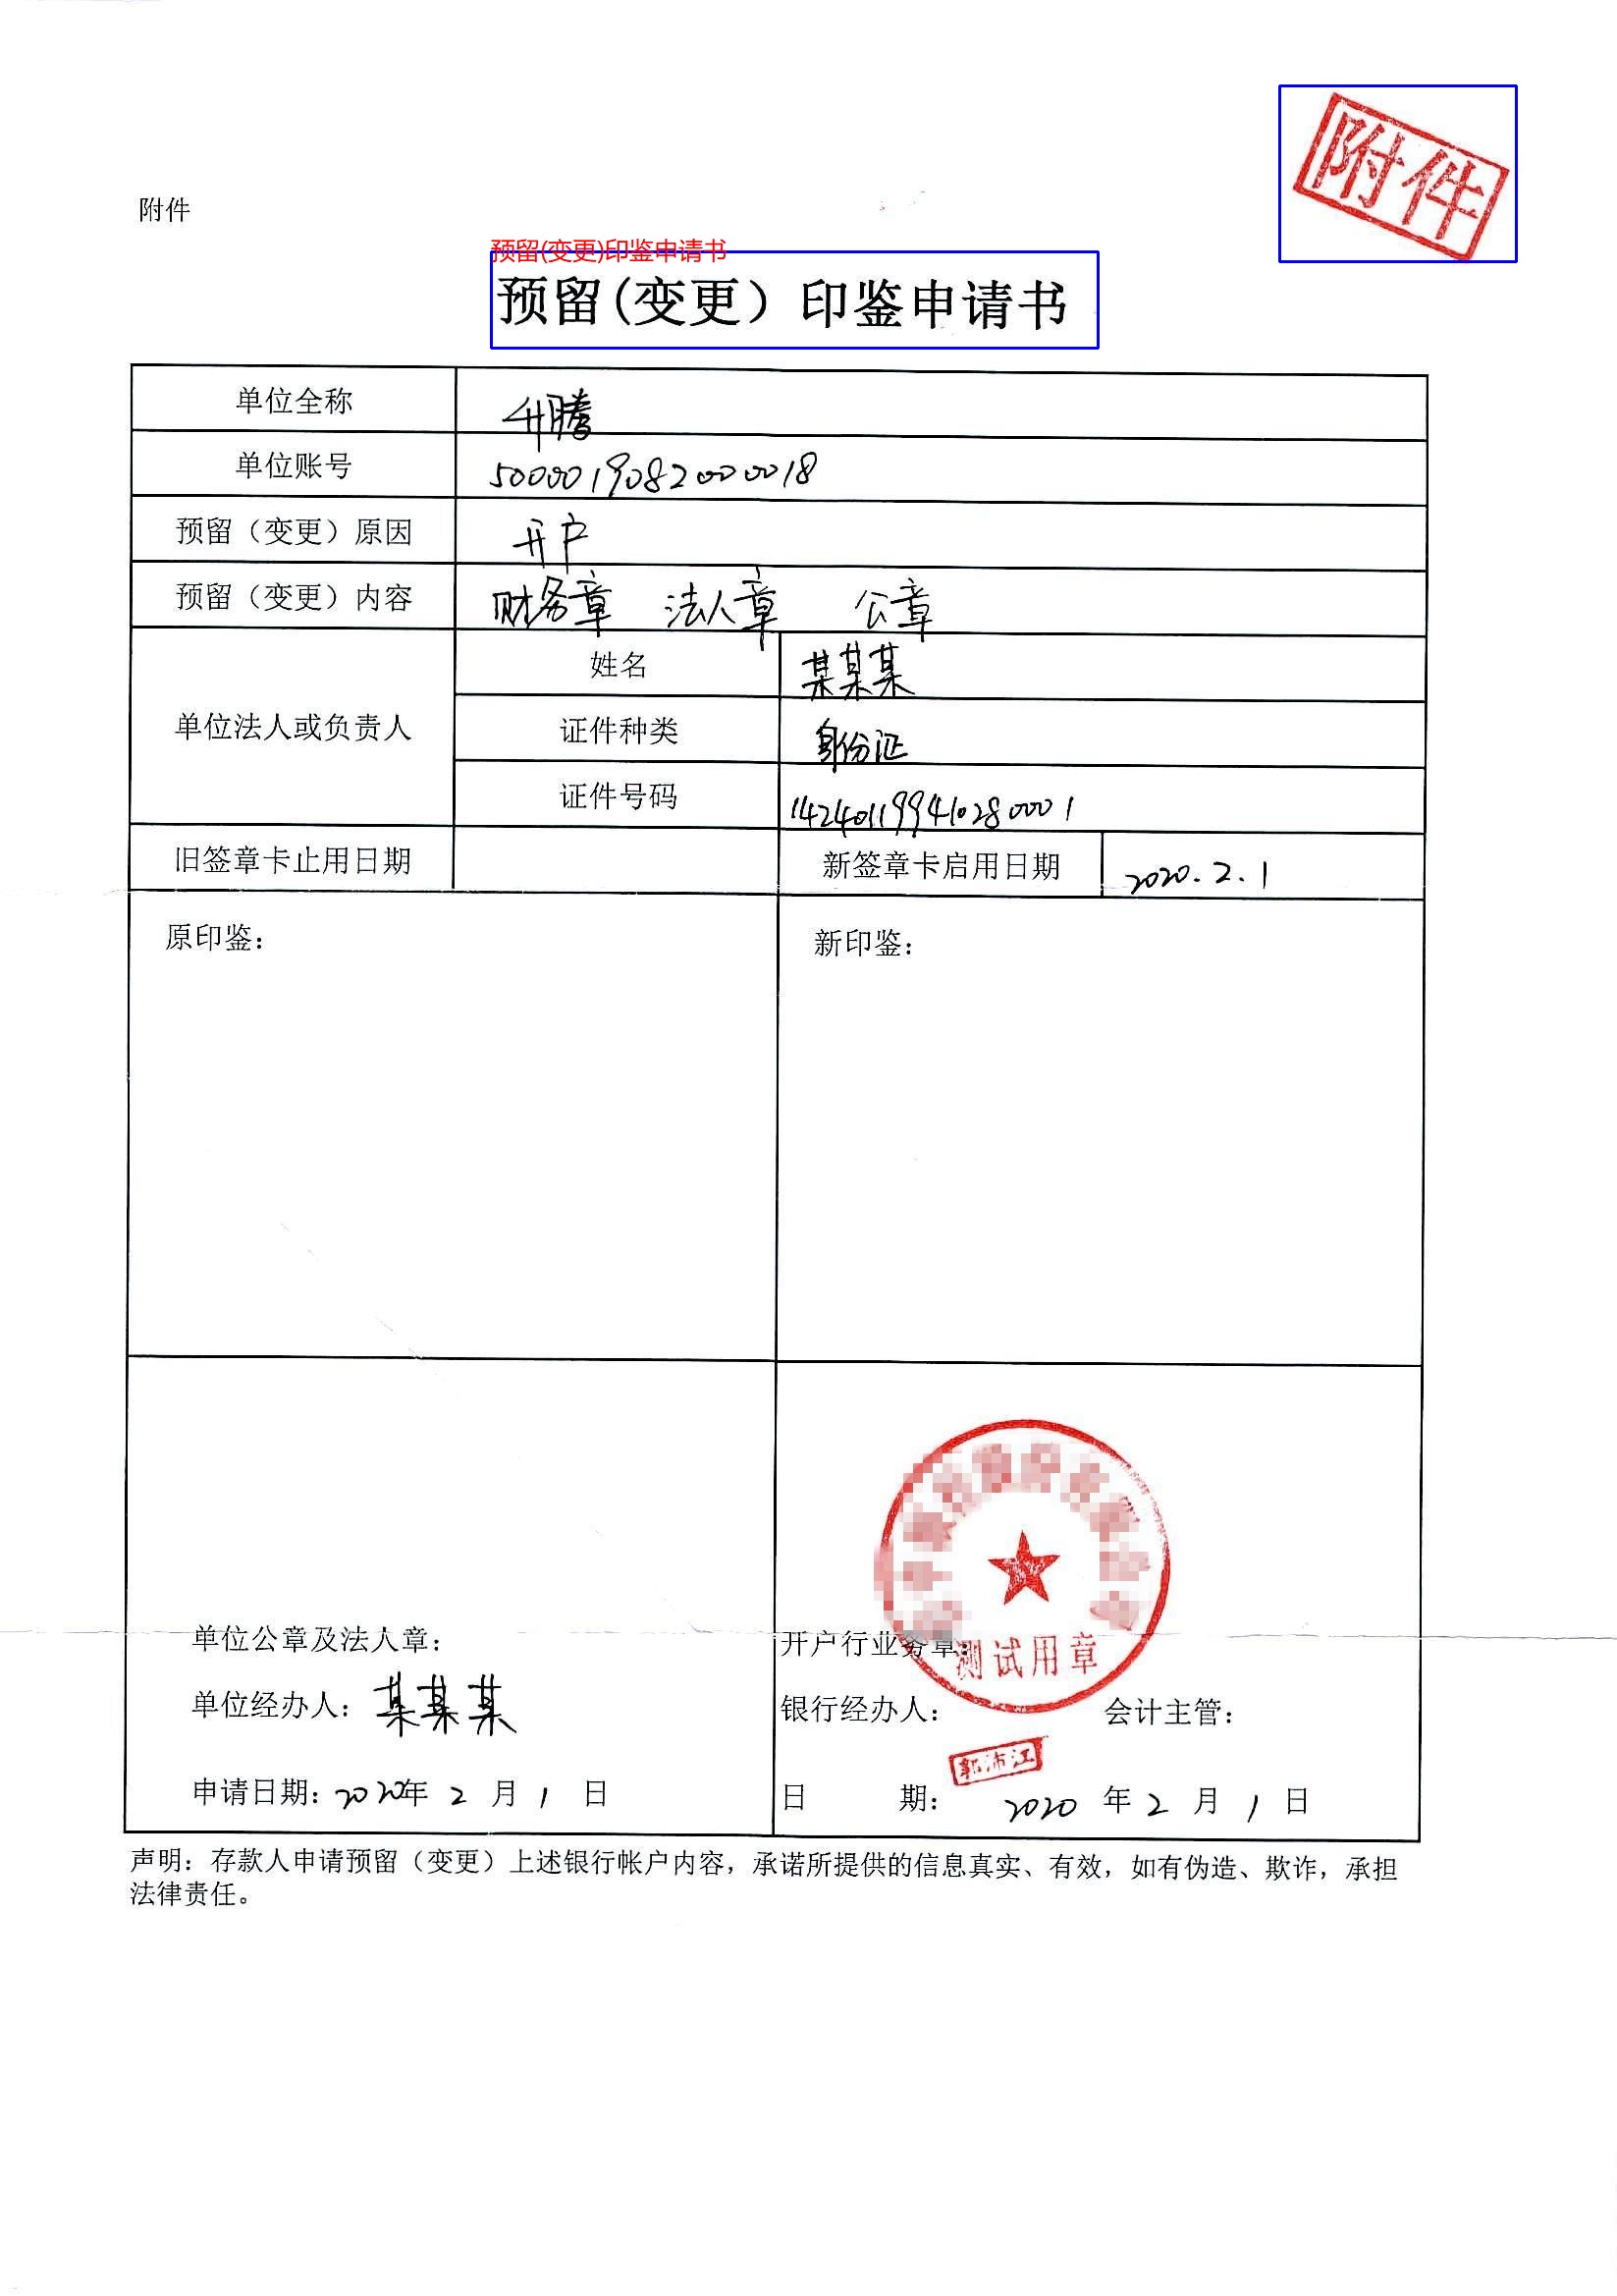 附件
附件
预留(变更)印鉴申请书
预留(变更）印鉴申请书
单位全称 升腾
单位账号 5000019082000018
预留（变更）原因 开户
预留（变更）内容 财务章 法人章 公章
单位法人或负责人
姓名 某某某
证件种类 身份证
证件号码 142401199410280001
旧签章卡止用日期 新签章卡启用日期 2020.2.1
原印鉴： 新印鉴：
测试用章
单位公章及法人章： 开户行业务章：
单位经办人：某某某 银行经办人： 会计主管：
郭沛江
申请日期：2020年 2 月 1 日 日 期： 2020 年 2 月 1 日
声明：存款人申请预留（变更）上述银行帐户内容，承诺所提供的信息真实、有效，如有伪造、欺诈，承担
法律责任。